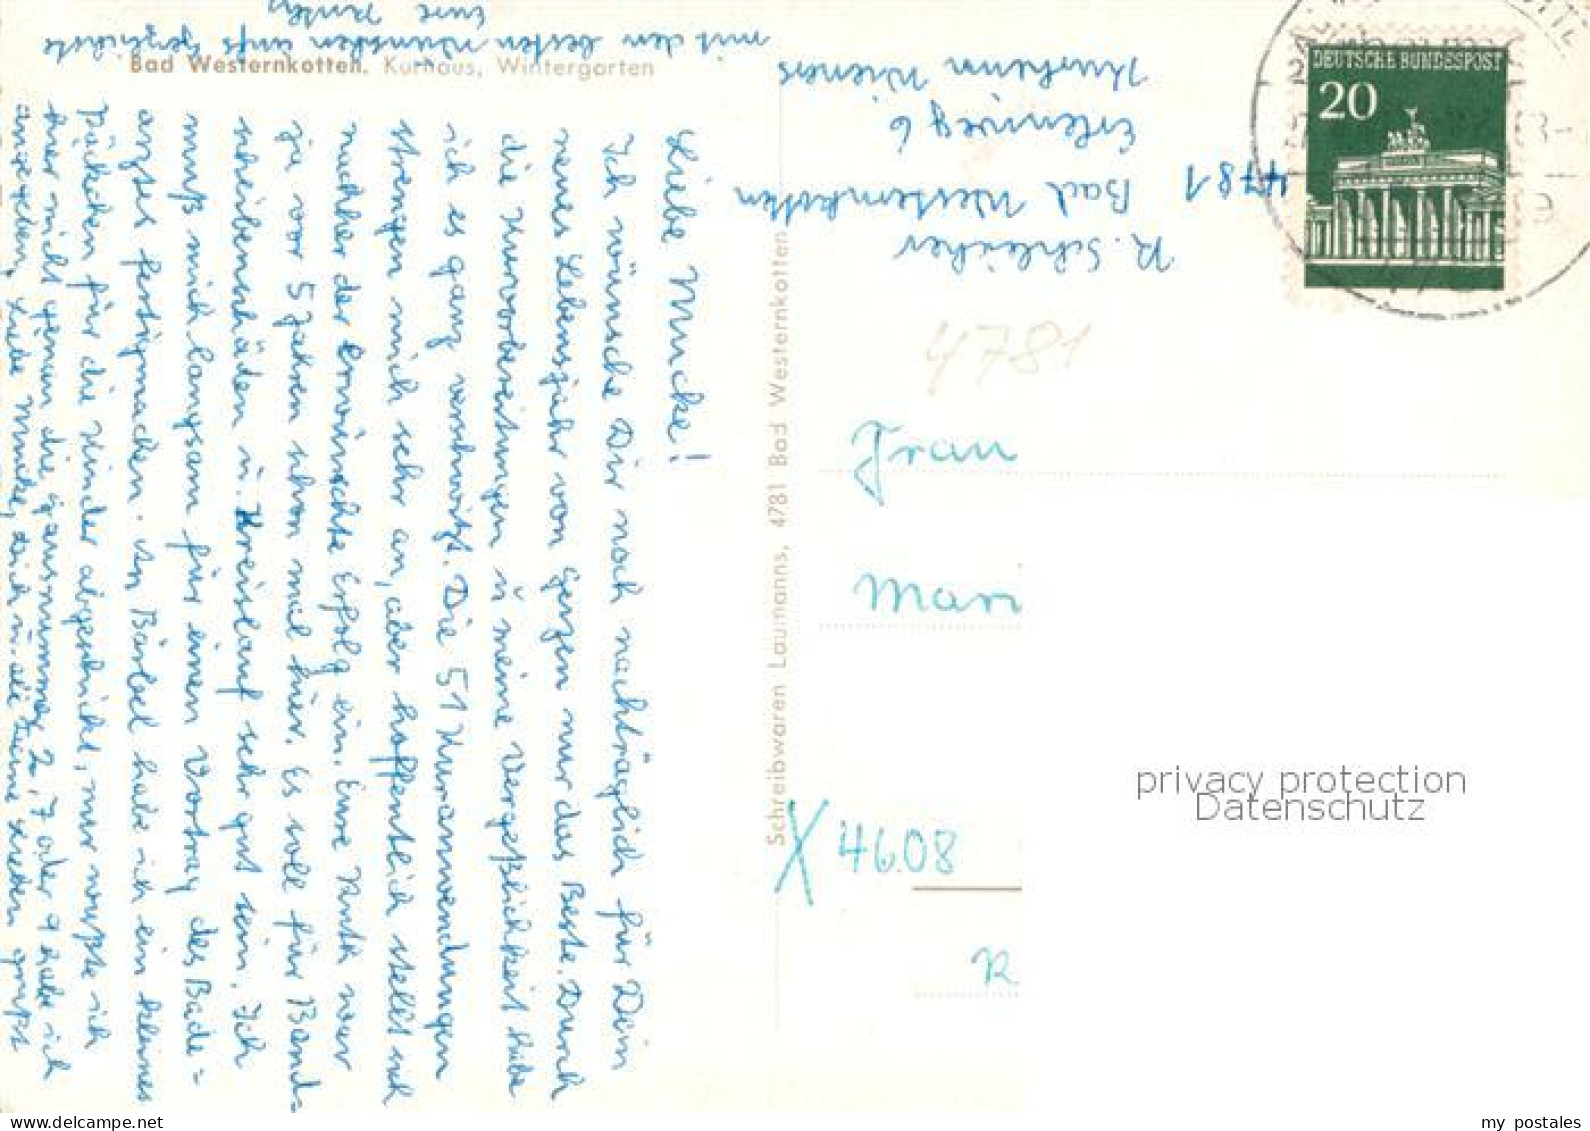 Bad Westernkotten. Kurhaus, Wintergarten
Liebe Mucke!
Ich wünsche Dir noch nachträglich für Dein
neues Lebensjahr von Herzen nur das Beste. Durch
die Kurvorbereitungen u. meine Vergeßlichkeit habe
ich es ganz verschwitzt. Die 51 Kuranwendungen
strengen mich sehr an, aber hoffentlich stellt sich
nachher der erwünschte Erfolg ein. Eure Ruth war
ja vor 5 Jahren schon mal hier. Es soll für Band-
scheibenschäden u. Kreislauf sehr gut sein. Ich
muß mich langsam für einen Vortrag des Bade=
arztes fertigmachen. An Bärbel habe ich ein kleines
Päckchen für die Kinder abgeschickt, nur wußte ich
hier nicht genau die Hausnummer, 2, 7 oder 9 habe ich
angegeben. Liebe Mucke, Dich u. alle Deine Lieben grüßt
mit den besten Wünschen aufs herzlichste
Eure
R. Schleicher
4781 Bad Westernkotten
Erlenweg 6
Kurheim Wieners
Schreibwaren Laumanns, 4781 Bad Westernkotten
DEUTSCHE BUNDESPOST
20
4781
Frau
Mari
X 4608
R
privacy protection
Datenschutz
my postales